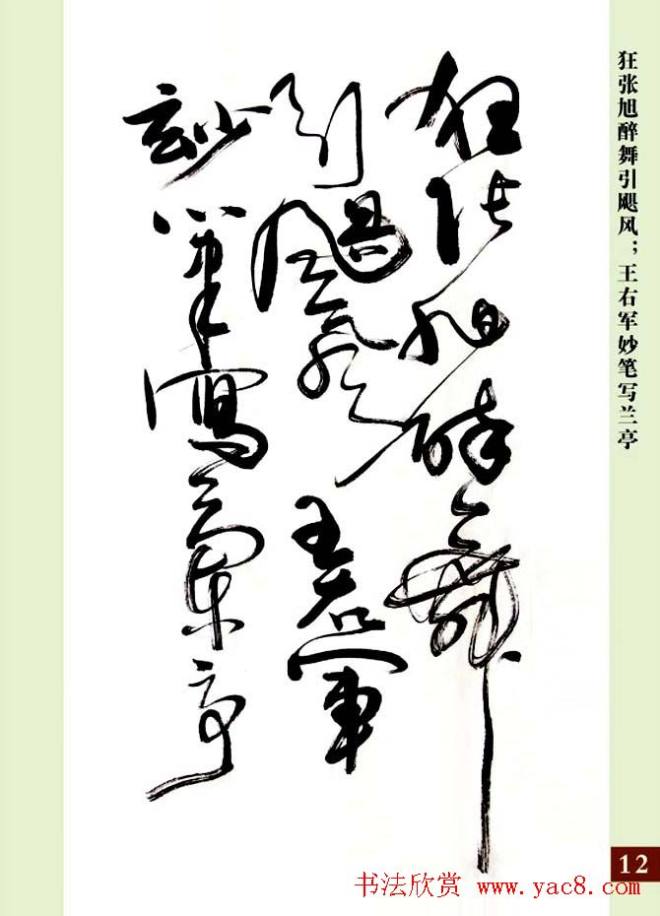 狂张旭醉舞
引飓风王右军
妙笔写兰亭
狂张旭醉舞引飓风；王右军妙笔写兰亭
12
书法欣赏 www.yac8.com